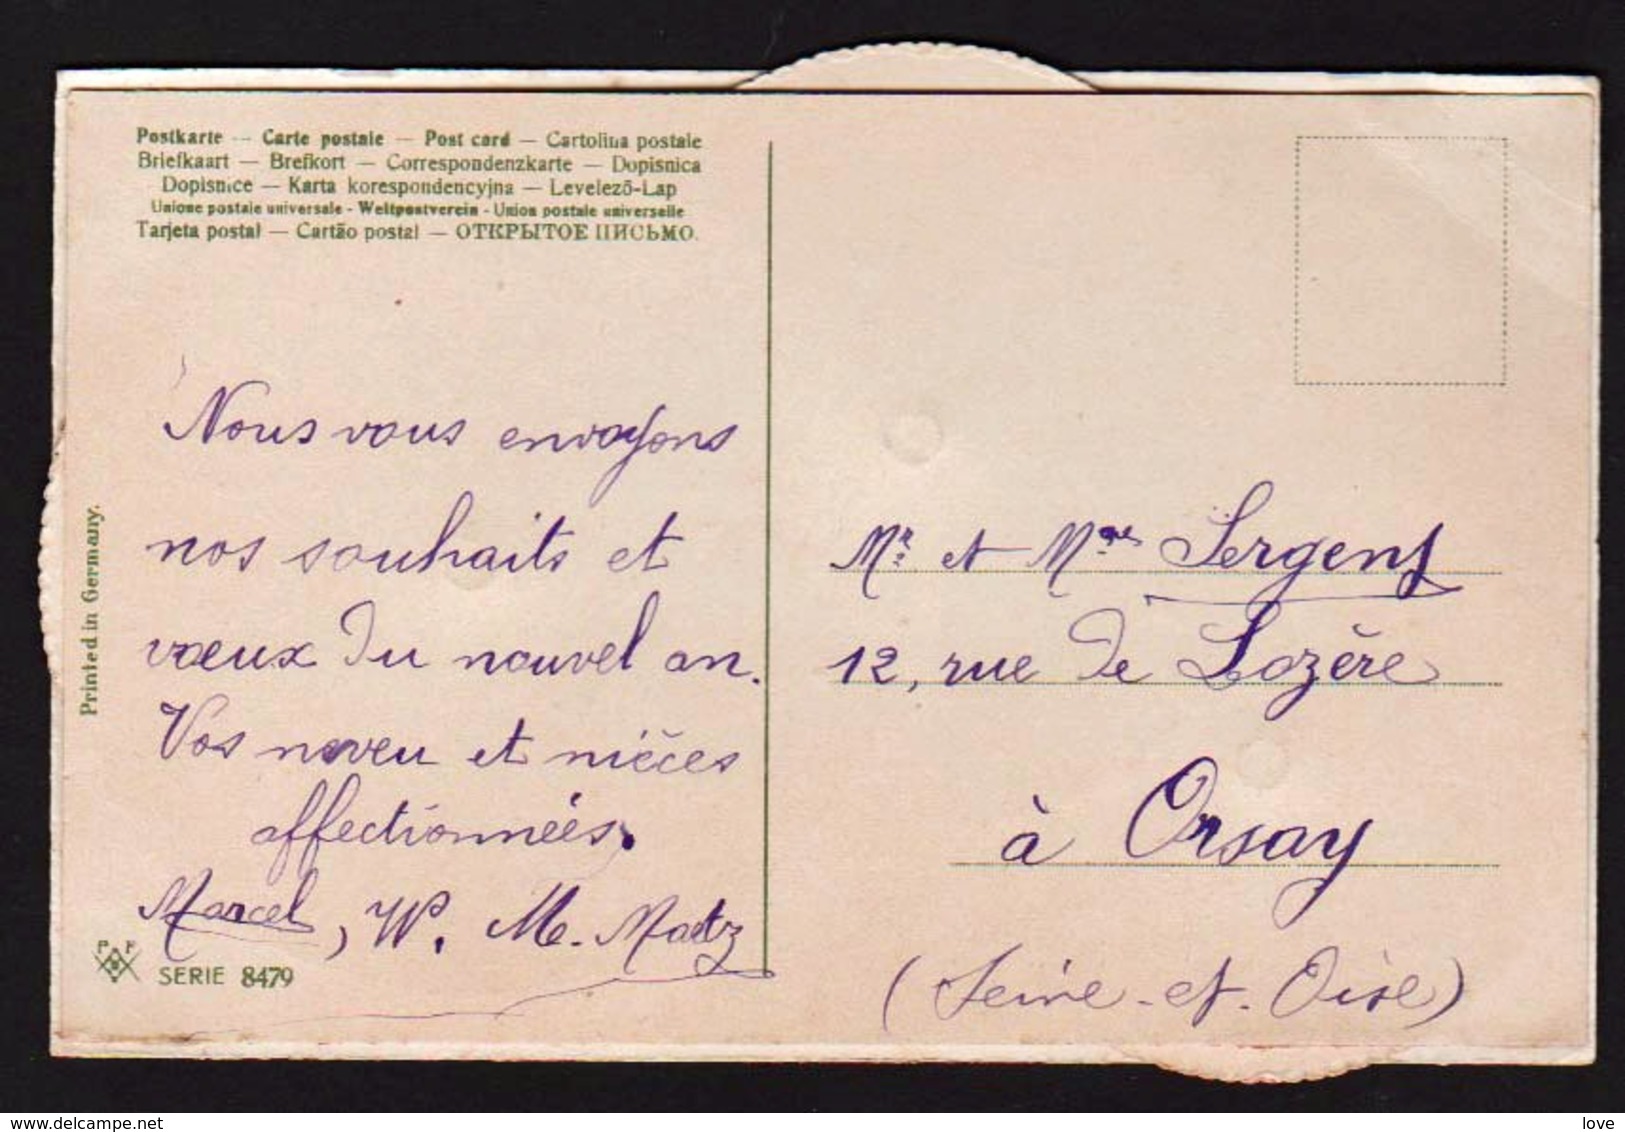 Postkarte — Carte postale — Post card — Cartolina postale
Briefkaart — Brefkort — Correspondenzkarte — Dopisnica
Dopisnice — Karta korespondencyjna — Levelező-Lap
Unione postale universale - Weltpostverein - Union postale universelle
Tarjeta postal — Cartão postal — ОТКРЫТОЕ ПИСЬМО.
Nous vous envoyons
nos souhaits et
vœux du nouvel an.
Vos neveu et nièces
affectionnées.
Marcel, W. M. Maetz
Printed in Germany.
P F
SERIE 8479
Mr et Mme Sergent
12, rue de Lozère
à Orsay
(Seine-et-Oise)
love